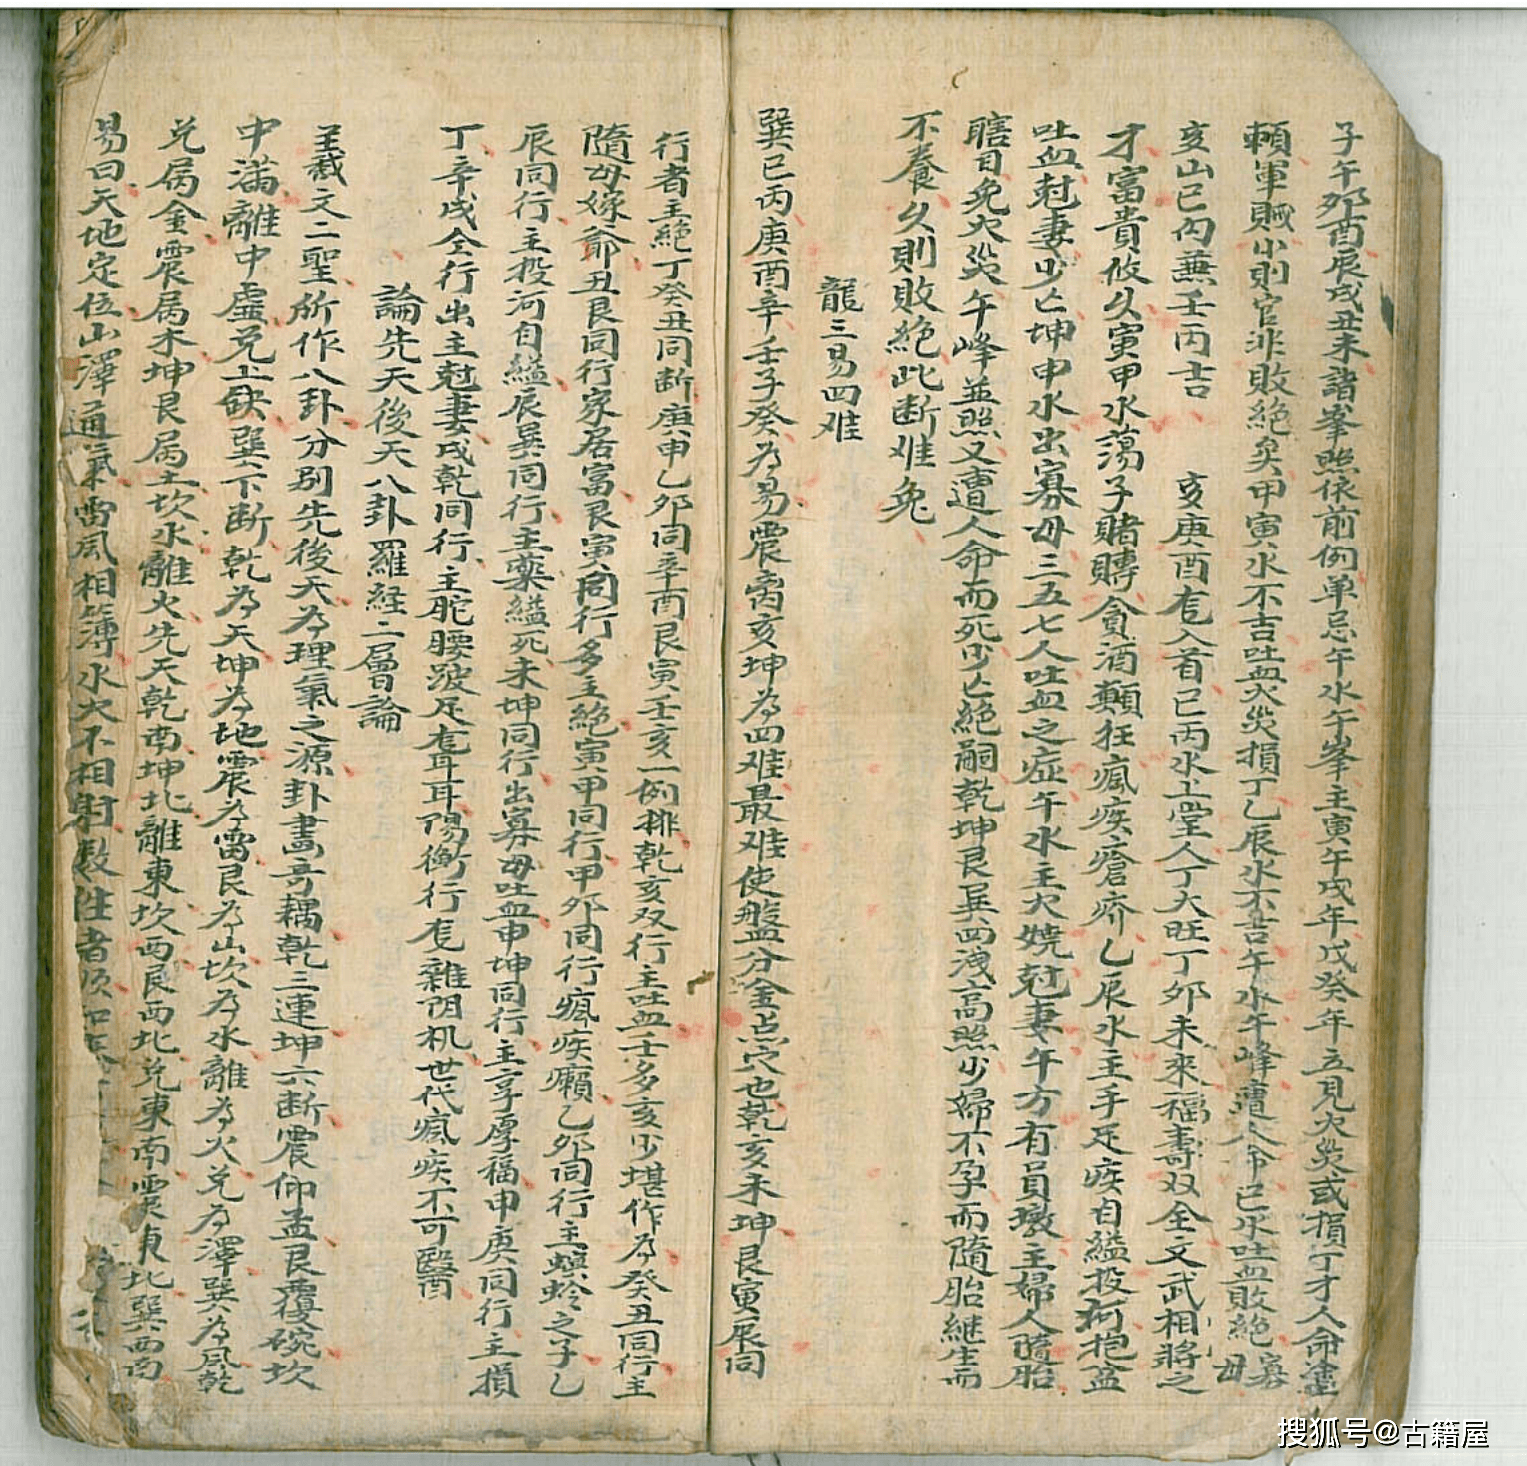 子午卯酉辰戌丑未諸峯照依前例单忌午水午峯主寅午戌年戊癸年立見火災或損丁才人命塗
賴軍賊小則官非敗絕矣甲寅水不吉吐血火災損丁乙辰水不吉午水午峰遭人命巳水吐血敗絕寡母
亥山巳丙兼壬丙吉　亥庚酉龙入首巳丙水上堂人丁大旺丁卯未來福壽双全文武相將之
才富貴攸久寅甲水蕩子賭賻貪酒顛狂瘋疾瘡疥乙辰水主手足疾自縊投河抱盆
吐血尅妻少亡坤申水出寡母三五七人吐血之症午水主火燒尅妻午方有員墩主婦人隨胎
瞎目免火災午峰並照又遭人命而死少亡絕嗣乾坤艮巽四洩高照少婦不孕而隨胎継生而
不養久則敗絕此断难免
龍三易四难
巽巳丙庚酉辛壬子癸為易震离亥坤為四难最难使盤分金点穴也乾亥未坤艮寅辰同
行者主絕丁癸丑同断庚申乙卯同辛酉艮寅壬亥一例排乾亥双行主吐血壬多亥少堪作為癸丑同行主
隨母嫁爺丑艮同行家居富艮寅同行多主絕寅甲同行甲卯同行瘋疾癩乙卯同行主螟蛉之子乙
辰同行主投河自縊辰巽同行主藥縊死未坤同行出寡母吐血申坤同行主享厚福申庚同行主損
丁辛戌仝行出主尅妻戌乾同行主駝腰跛足龙耳耳陽衡行龙雜閃机世代瘋疾不可醫
論先天後天八卦羅経二層論
羲文二聖所作八卦分别先後天為理氣之源卦畵竒耦乾三連坤六断震仰盂艮覆碗坎
中滿離中虛兌上缺巽下断乾為天坤為地震為雷艮為山坎為水離為火兌為澤巽為風乾
兌属金震属木坤艮属土坎水離火先天乾南坤北離東坎西艮西北兌東南震東北巽西南
易曰天地定位山澤通氣雷風相簿水火不相射数徃者
搜狐号@古籍屋